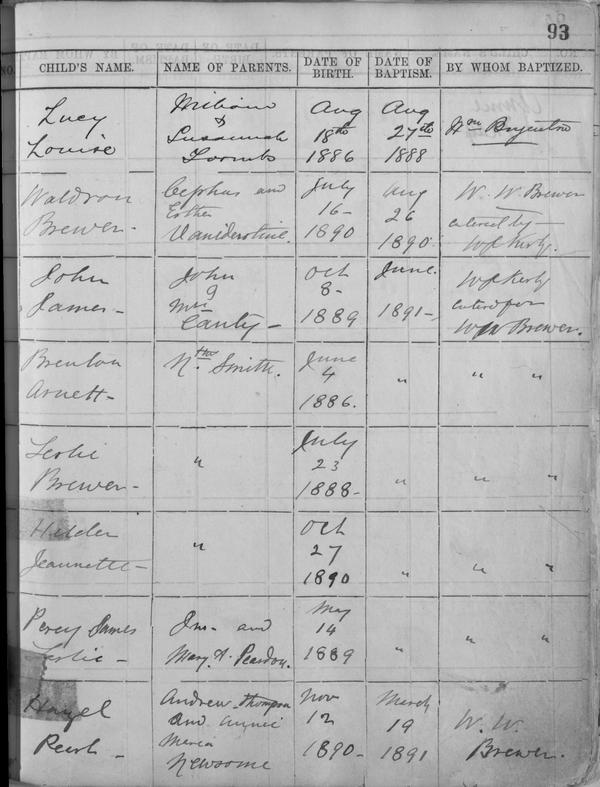 93
NO. CHILD'S NAME. NAME OF PARENTS. DATE OF BIRTH. DATE OF BAPTISM. BY WHOM BAPTIZED.
Lucy Louise
& Susannah
Aug 18th 1886
Aug 27th 1888
Wm
Waldron Brewer -
Cephus and Esther
July 16 - 1890
Aug 26 1890
W. W. Brewer
entered by
John James -
John & Mrs Canty -
Oct 8 - 1889
June. 1891 -
entered for
W W Brewer.
Brenton Arnett -
Smith.
June 4 1886.
" " "
Leslie Brewer -
"
July 23 1888 -
" " "
Jeannette -
"
Oct 27 1890
" " "
Percy James Leslie -
Jno. and Mary A. Peardon.
May 14 1889
" " "
Hazel Pearl -
Andrew Thompson and Annie Maria Newsome
Nov 12 1890 -
March 19 1891
W. W. Brewer.